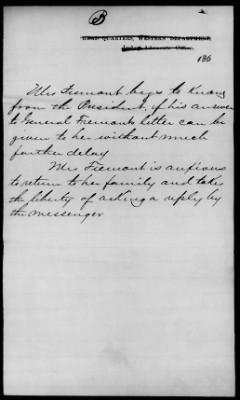 B
HEAD QUARTERS, WESTERN DEPARTMENT,
Judge Advocate's Office.
186
Mrs Fremont begs to know
from the President, if his answer
to General Fremont's letter can be
given to her without much
further delay
Mrs Fremont is anxious
to return to her family and takes
the liberty of asking a reply by
the messenger